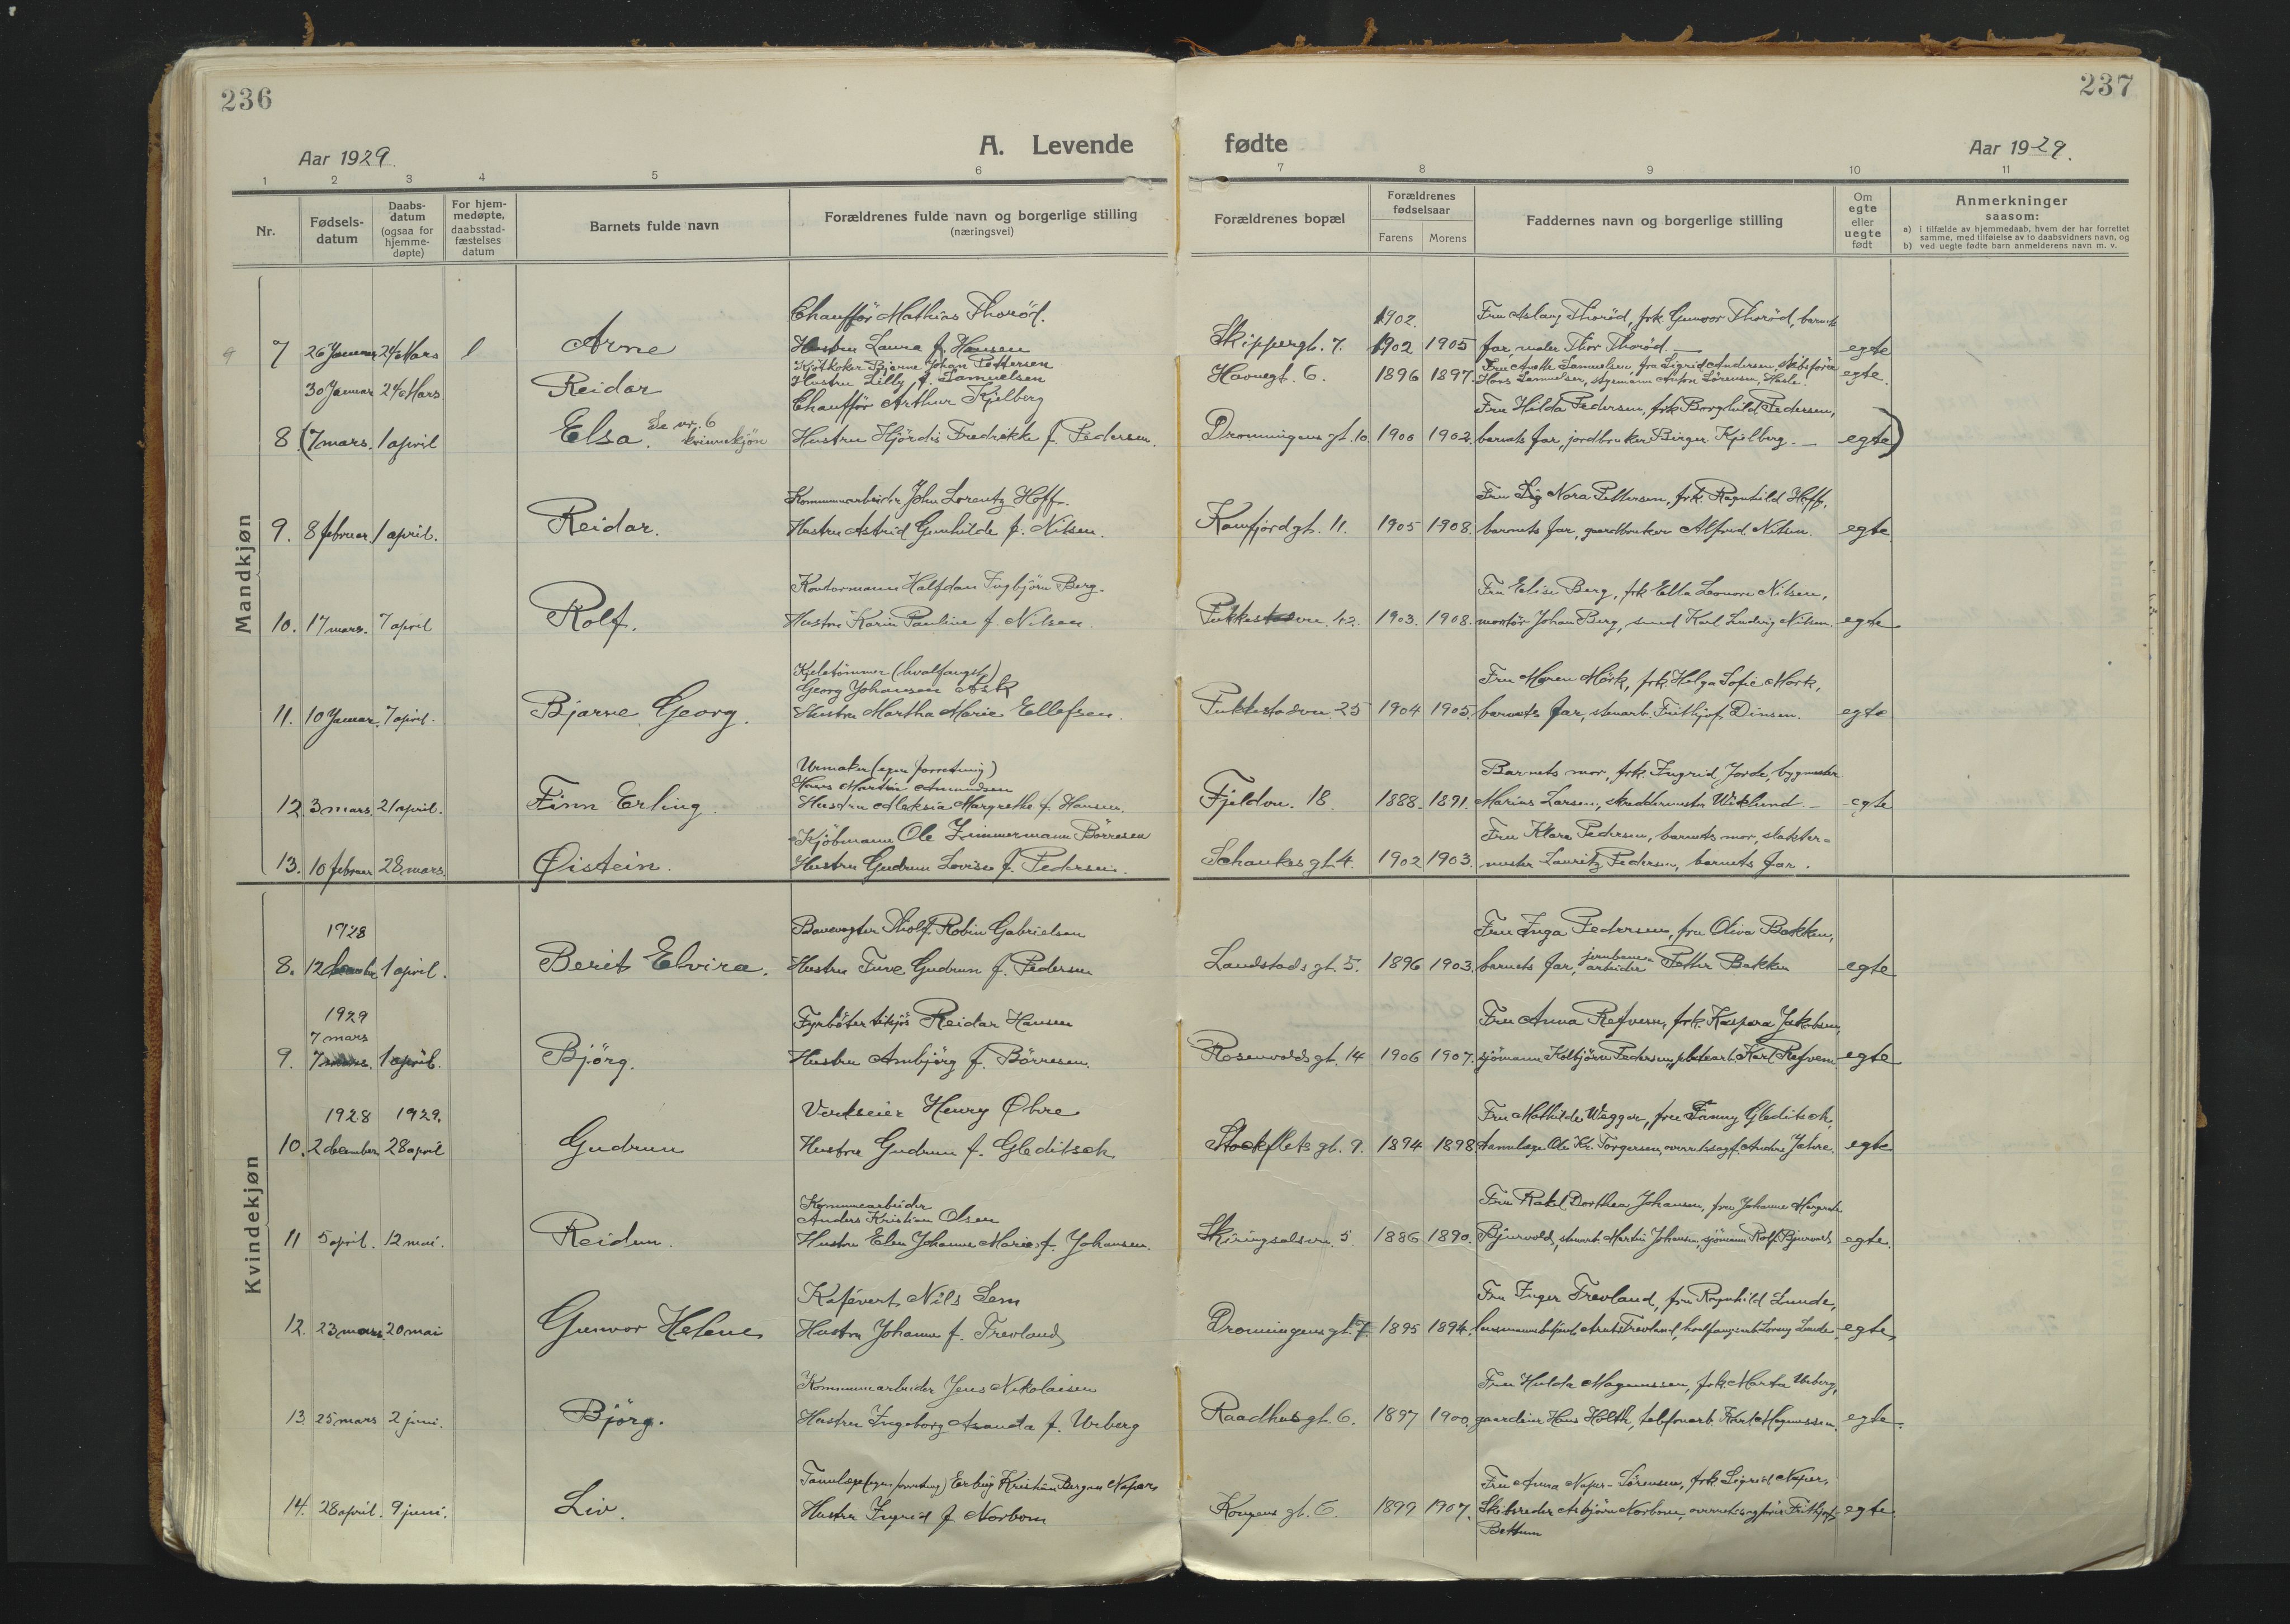 236
237
Aar 1929.
A. Levende fødte
Aar 1929.
1 2 3 4 5 6 7 8 9 10 11
Nr.
Fødsels-
datum
Daabs-
datum
(ogsaa for
hjemme-
døpte)
For hjem-
medøpte,
daabsstad-
fæstelses
datum
Barnets fulde navn
Forældrenes fulde navn og borgerlige stilling
(næringsvei)
Forældrenes bopæl
Forældrenes
fødselsaar
Farens Morens
Faddernes navn og borgerlige stilling
Om
egte
eller
uegte
født
Anmerkninger
saasom:
a) i tilfælde av hjemmedaab, hvem der har forrettet
samme, med tilføielse av to daabsvidners navn, og
b) ved uegte fødte barn anmelderens navn m. v.
Mandkjøn
Chauffør Mathias Thorød. 1902. Fru Aslaug Thorød, frk. Gunvor Thorød, barnets
7 26 Januar 24 Mars Arne Hustru Laura f. Hansen Skippergt. 7. 1902 1905 far, maler Thor Thorød egte
Kjøtkoker Bjarne Johan Pettersen Fru Anette Samuelsen, fru Sigrid Andersen, skibsfører
30 Januar 24 Mars Reidar Hustru Lilly f. Samuelsen Havnegt. 6. 1896 1897. Hans Samuelsen, styrmann Anton Sørensen, Hasle. egte.
Chauffør Arthur Kjelberg Fru Hilda Pedersen, frk Borghild Pedersen,
8 (7 mars. 1 april Elsa. Se nr. 6 kvinnekjøn Hustru Hjördis Fredrikke f. Pedersen. Dronningens gt. 10 1900 1902. barnets far, jordbruker Birger Kjelberg. egte)
Kommunearbeider John Lorentz Hoff. Fru Nora Pettersen, frk. Ragnhild Hoff,
9. 8 februar. 1 april. Reidar. Hustru Astrid Gunhilde f. Nilsen. Kamfjordgt. 11. 1905 1908. barnets far, gaardbruker Alfred Nilsen. egte
Kontormann Halfdan Ingbjørn Berg. Fru Elise Berg, frk Ella Leonore Nilsen,
10. 17 mars. 7 april Rolf. Hustru Karin Pauline f. Nilsen. 42. 1903. 1908. montør Johan Berg, smed Karl Ludvig Nilsen. egte
Kjeletømmer (hvalfangst)
Georg Johansen Ask Fru Maren Mørk, frk. Helga Sofie Mørk,
11. 10 Januar. 7 april. Bjarne Georg. Hustru Martha Marie Ellefsen. Pukkestadvn. 25 1904 1905. barnets far, stenarb. Frithjof Dinsen. egte
Urmaker (egen forretning)
Hans Martin Amundsen Barnets mor, frk. Ingrid Jorde, bygmester
12. 3 mars. 21 april. Finn Erling. Hustru Aleksia Margrethe f. Hansen. Fjeldvn. 18. 1888. 1891. Marius Larsen, skreddermester Wiklund egte
Kjøbmann Ole Zimmermann Børresen Fru Klara Pedersen, barnets mor, slakter-
13. 10 februar 28 mars. Øistein. Hustru Gudrun Lovise f. Pedersen. Schankes gt. 4. 1902 1903. mester Lauritz Pedersen, barnets far.
Kvindekjøn
1928 Banevogter Tholf Robin Gabrielsen Fru Inga Pedersen, fru Oliva Bakken,
8. 12 december 1 april. Berit Elvira. Hustru Tuve Gudrun f. Pedersen Landstads gt. 5. 1896 1903. barnets far, jernbanearbeider Petter Bakken egte
1929
7 mars Fyrbøter tilsjøs Reidar Hansen Fru Anna Refvem, frk. Kaspara Jakobsen,
9. 7 mars. 1 april. Bjørg. Hustru Ambjørg f. Børresen. Rosenvolds gt. 14 1906 1907. sjømann Kolbjørn Pedersen, platearb. Karl Refvem egte
1928 1929. Verkseier Henry Øhre Fru Mathilde Wegger, fru Fanny Gleditsch,
10. 2 december 28 april Gudrun Hustru Gudrun f. Gleditsch Stockflets gt. 9. 1894 1898. tannlæge Ole Kr. Torgersen, overretssagf. Anders Jahre. egte
Kommunearbeider
Anders Kristian Olsen Fru Rakel Dorthea Johansen, fru Johanne Margrete
11 5 april. 12 mai. Reidun. Hustru Elen Johanne Marie f. Johansen. Skiringsalsvn. 5 1886 1890. Bjurvold, stenarb. Martin Johansen, sjømann Rolf Bjurvold egte.
Kafévert Nils Lem Fru Inger Trevland, fru Ragnhild Lunde,
12. 23 mars. 20 mai Gunvor Helene Hustru Johanne f. Trevland Dronningens gt. 7 1895 1894. lensmannsbetjent Trevland, hvalfangerarb. Lorang Lunde. egte.
Kommunearbeider Jens Nikolaisen Fru Hulda Magnussen, frk. Marta Urberg,
13. 25 mars 2 juni. Bjørg. Hustru Ingeborg Amanda f. Urberg Raadhusgt. 6. 1897 1900. gaardeier Hans Holth, telefonarb. Karl Magnussen. egte.
Tannlæge (egen forretning) Erling Kristian Bergan Naper Fru Anna Naper-Sørensen, frk. Sigrid Naper,
14. 28 april. 9 juni. Liv. Hustru Ingrid f Norbom Kongens gt. 6. 1899 1907. Skibsreder Asbjørn Norbom, overretssagfører Frithjof egte.
Bettum